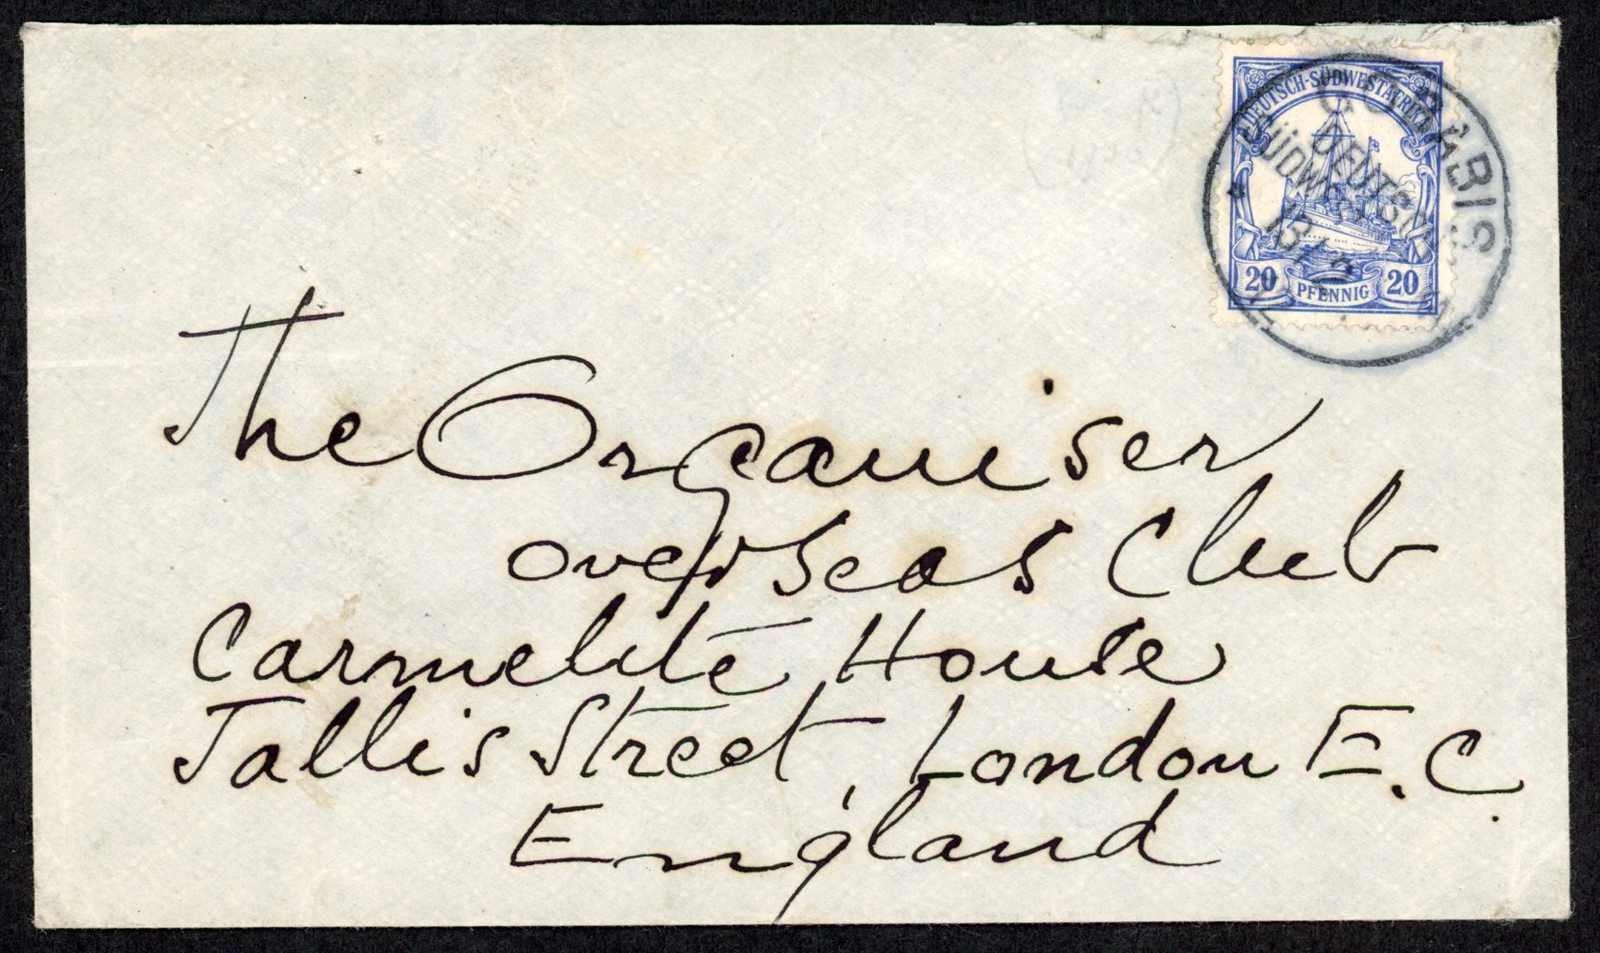 DEUTSCH-SÜDWESTAFRIKA
20 PFENNIG 20
DEUTSCH
SÜDWEST
The Organiser
Overseas Club
Carmelite House
Tallis Street, London E.C.
England